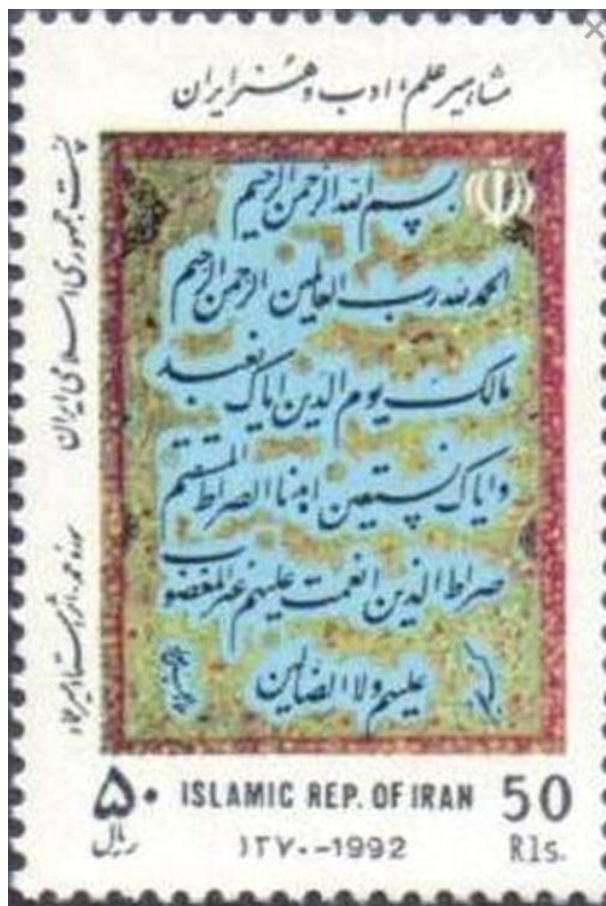 مشاهیر علم، ادب و هنر ایران
پست جمهوری اسلامی ایران
سوره حمد، اثر
میرعماد
بسم الله الرحمن الرحیم
الحمد لله رب العالمین الرحمن الرحیم
مالک یوم الدین ایاک نعبد
و ایاک نستعین اهدنا الصراط المستقیم
صراط الذین انعمت علیهم غیر المغضوب
علیهم ولا الضالین
۵۰ ISLAMIC REP. OF IRAN 50
ریال ۱۳۷۰-1992 Rls.